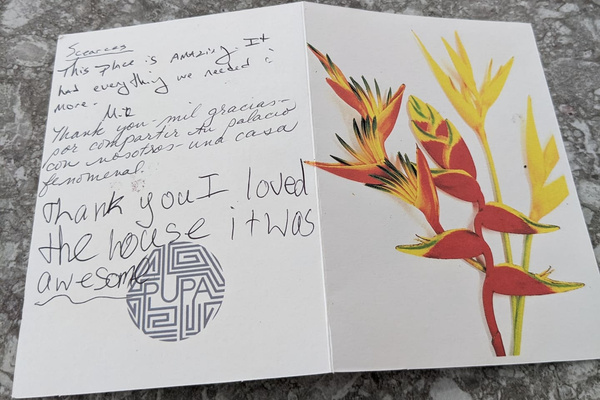 This place is AMAZing. It
had everything we needed &
more.
Thank you - mil gracias -
por compartir tu palacio
con nosotros - una casa
fenomenal.
Thank you I loved
the house it was
awesome
PUPA